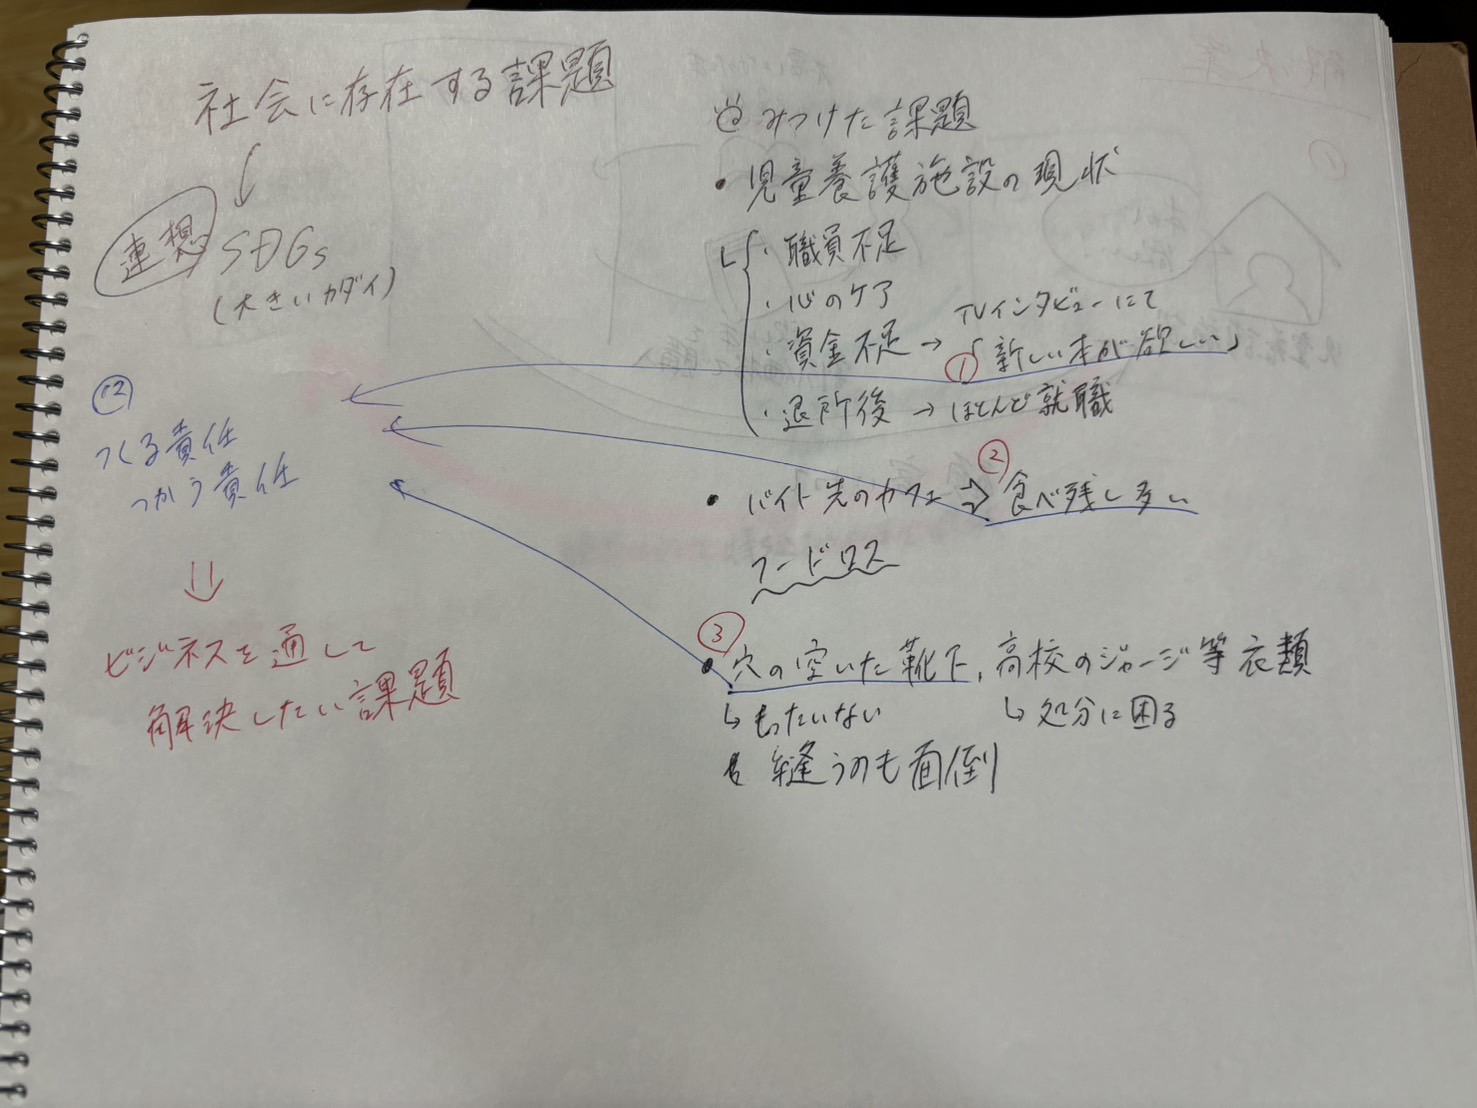 社会に存在する課題
連想
SDGs
(大きいカダイ)
⑫
つくる責任
つかう責任
ビジネスを通して
解決したい課題
みつけた課題
・児童養護施設の現状
・職員不足
・心のケア
・資金不足 → TVインタビューにて
①「新しい本が欲しい」
・退所後 → ほとんど就職
・バイト先のカフェ ⇒ ②食べ残し多い
フードロス
③
・穴の空いた靴下, 高校のジャージ等衣類
↳ もったいない ↳ 処分に困る
縫うのも面倒